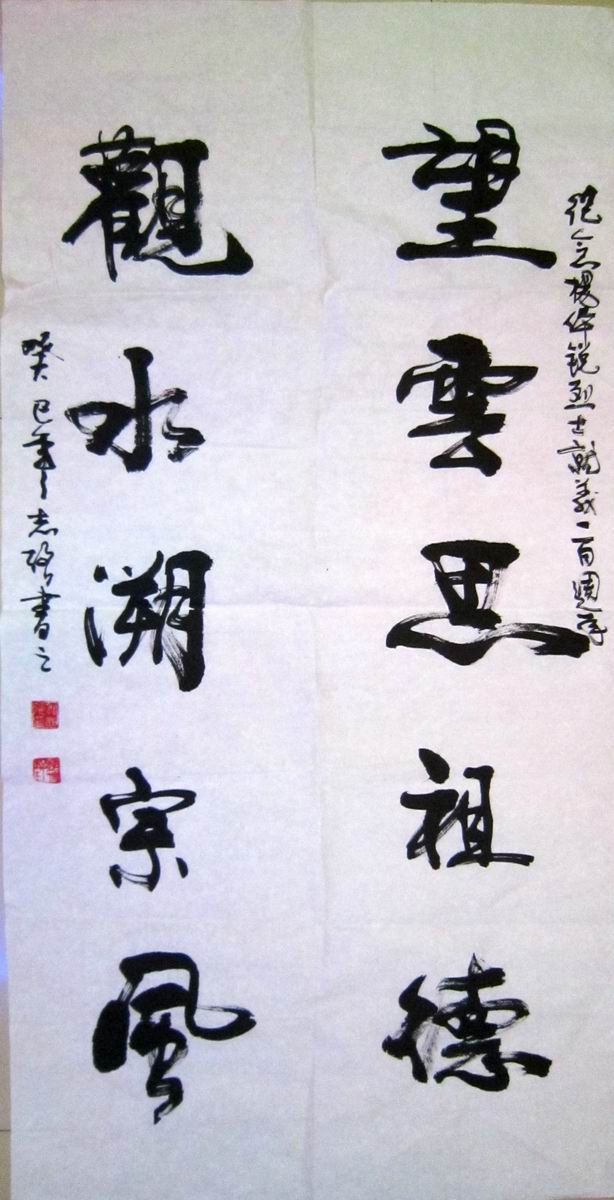 紀念楊銳烈士就義一百週年
望雲思祖德
觀水溯宗風
癸巳年志書之